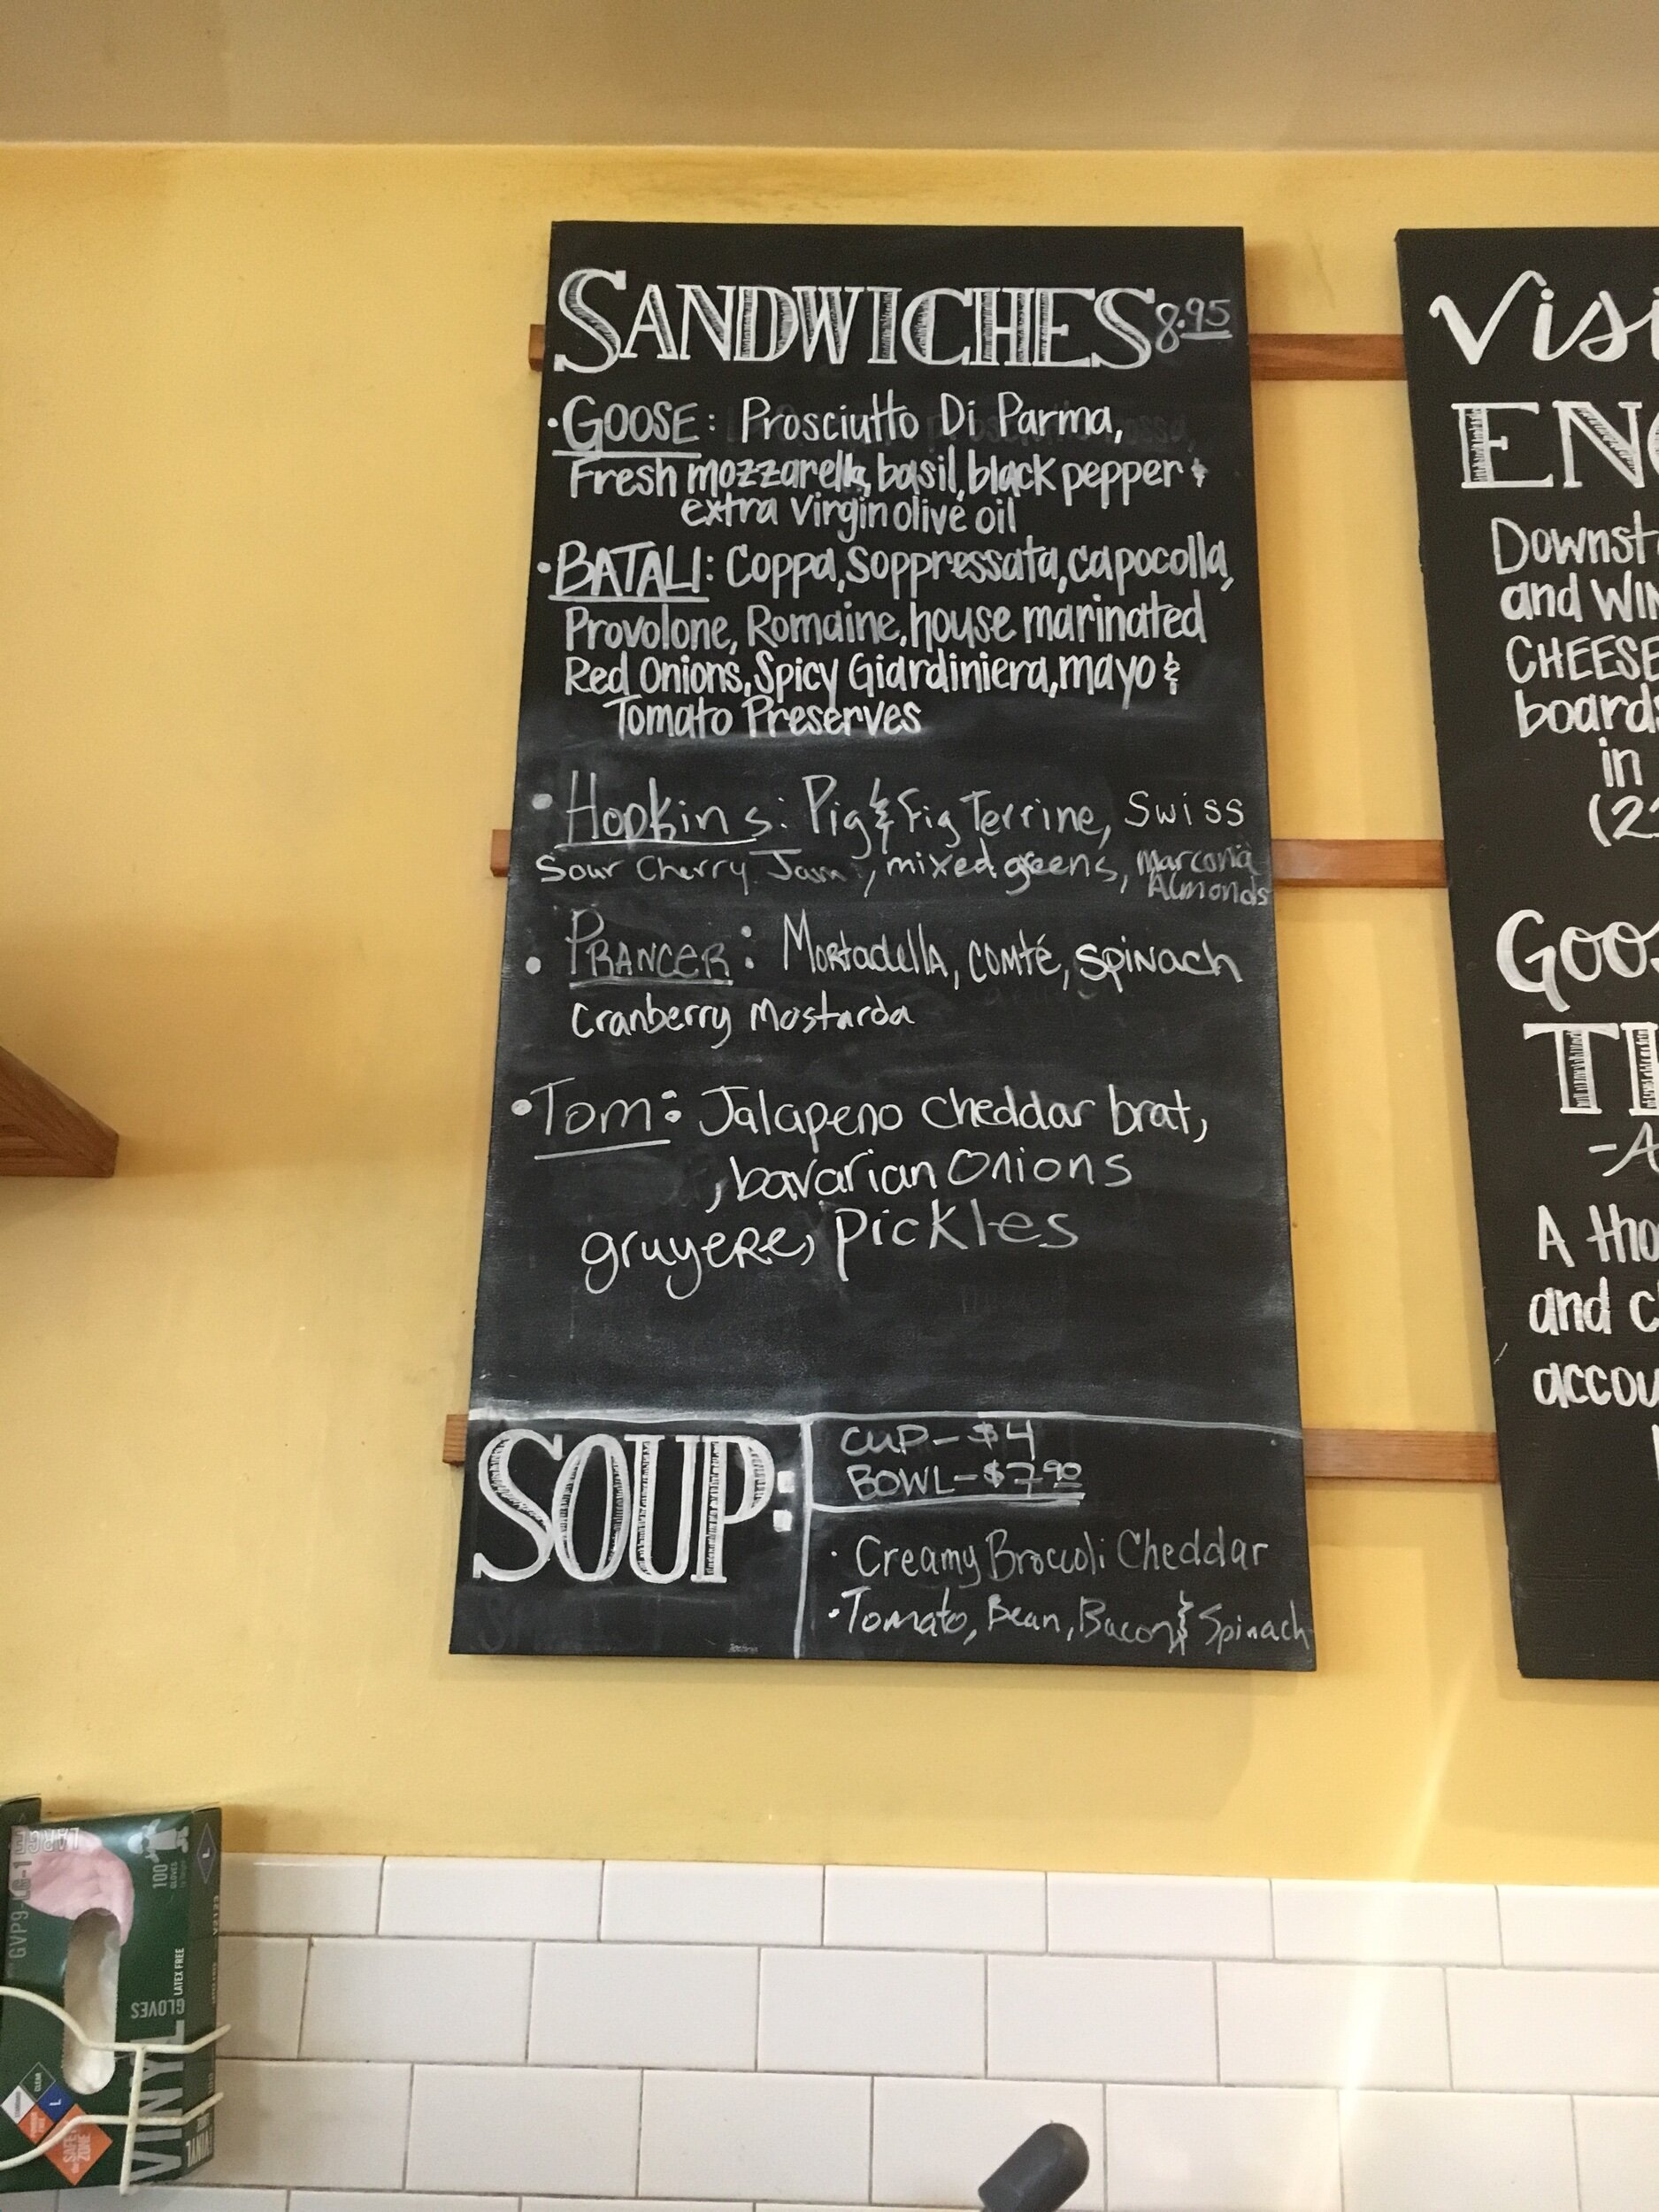 SANDWICHES 8.95
• GOOSE: Prosciutto Di Parma,
Fresh mozzarella, basil, black pepper &
extra Virgin olive oil
• BATALI: Coppa, Soppressata, Capocolla,
Provolone, Romaine, house marinated
Red Onions, Spicy Giardiniera, mayo &
Tomato Preserves
• Hopkins: Pig & Fig Terrine, Swiss
Sour Cherry Jam, mixed greens, Marcona
Almonds
• PRANCER: Mortadella, Comté, Spinach
Cranberry Mostarda
• Tom: Jalapeno Cheddar brat,
, bavarian Onions
gruyere, Pickles
SOUP:
CUP - $4
BOWL - $7.90
• Creamy Broccoli Cheddar
• Tomato, Bean, Bacon & Spinach
Visi
EN
Downst
and WIN
CHEESE
boards
in
(2
Goos
T
-A
A tho
and c
accou
LARGE
GVP9-LG-1
100
GLOVES
L
V2123
LATEX FREE
GLOVES
VINYL
CLEAR
L
SAFETY
ZONE